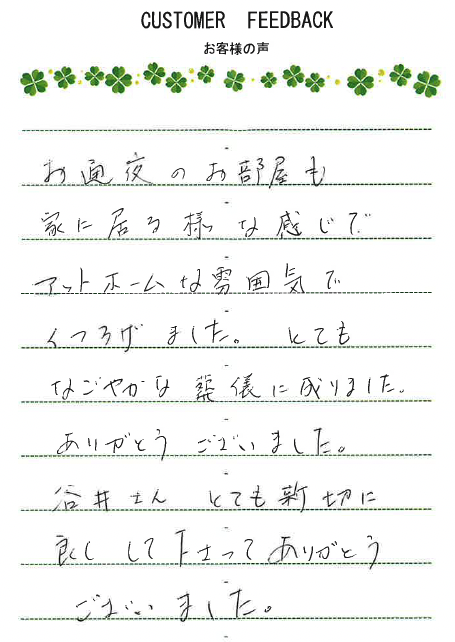 CUSTOMER FEEDBACK
お客様の声
お通夜のお部屋も
家に居る様な感じで
アットホームな雰囲気で
くつろげました。 とても
なごやかな葬儀に成りました。
ありがとう ございました。
谷井さん とても新切に
良くして下さってありがとう
ございました。